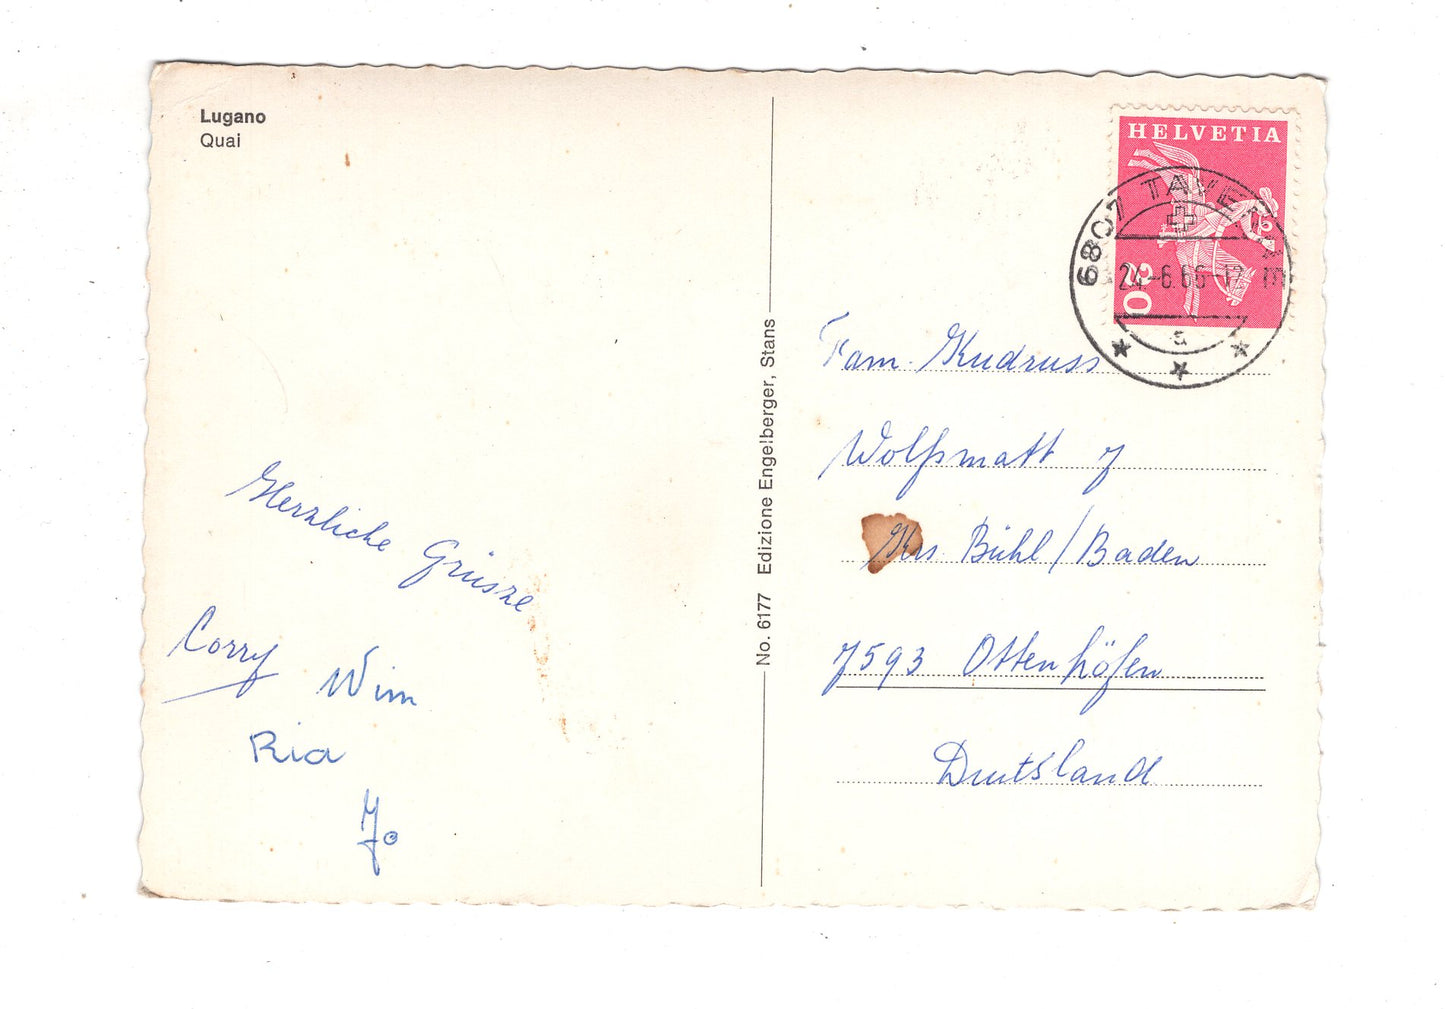 Lugano
Quai
Herzliche Grüsze
Corry
Wim
Ria
Jo
No. 6177 Edizione Engelberger, Stans
HELVETIA
20
6807 TAVERNE
24.-6.66-17
a
Fam. Knudruss
Wolfsmatt 7
Krs Bühl/Baden
7593 Ottenhöfen
Duitsland